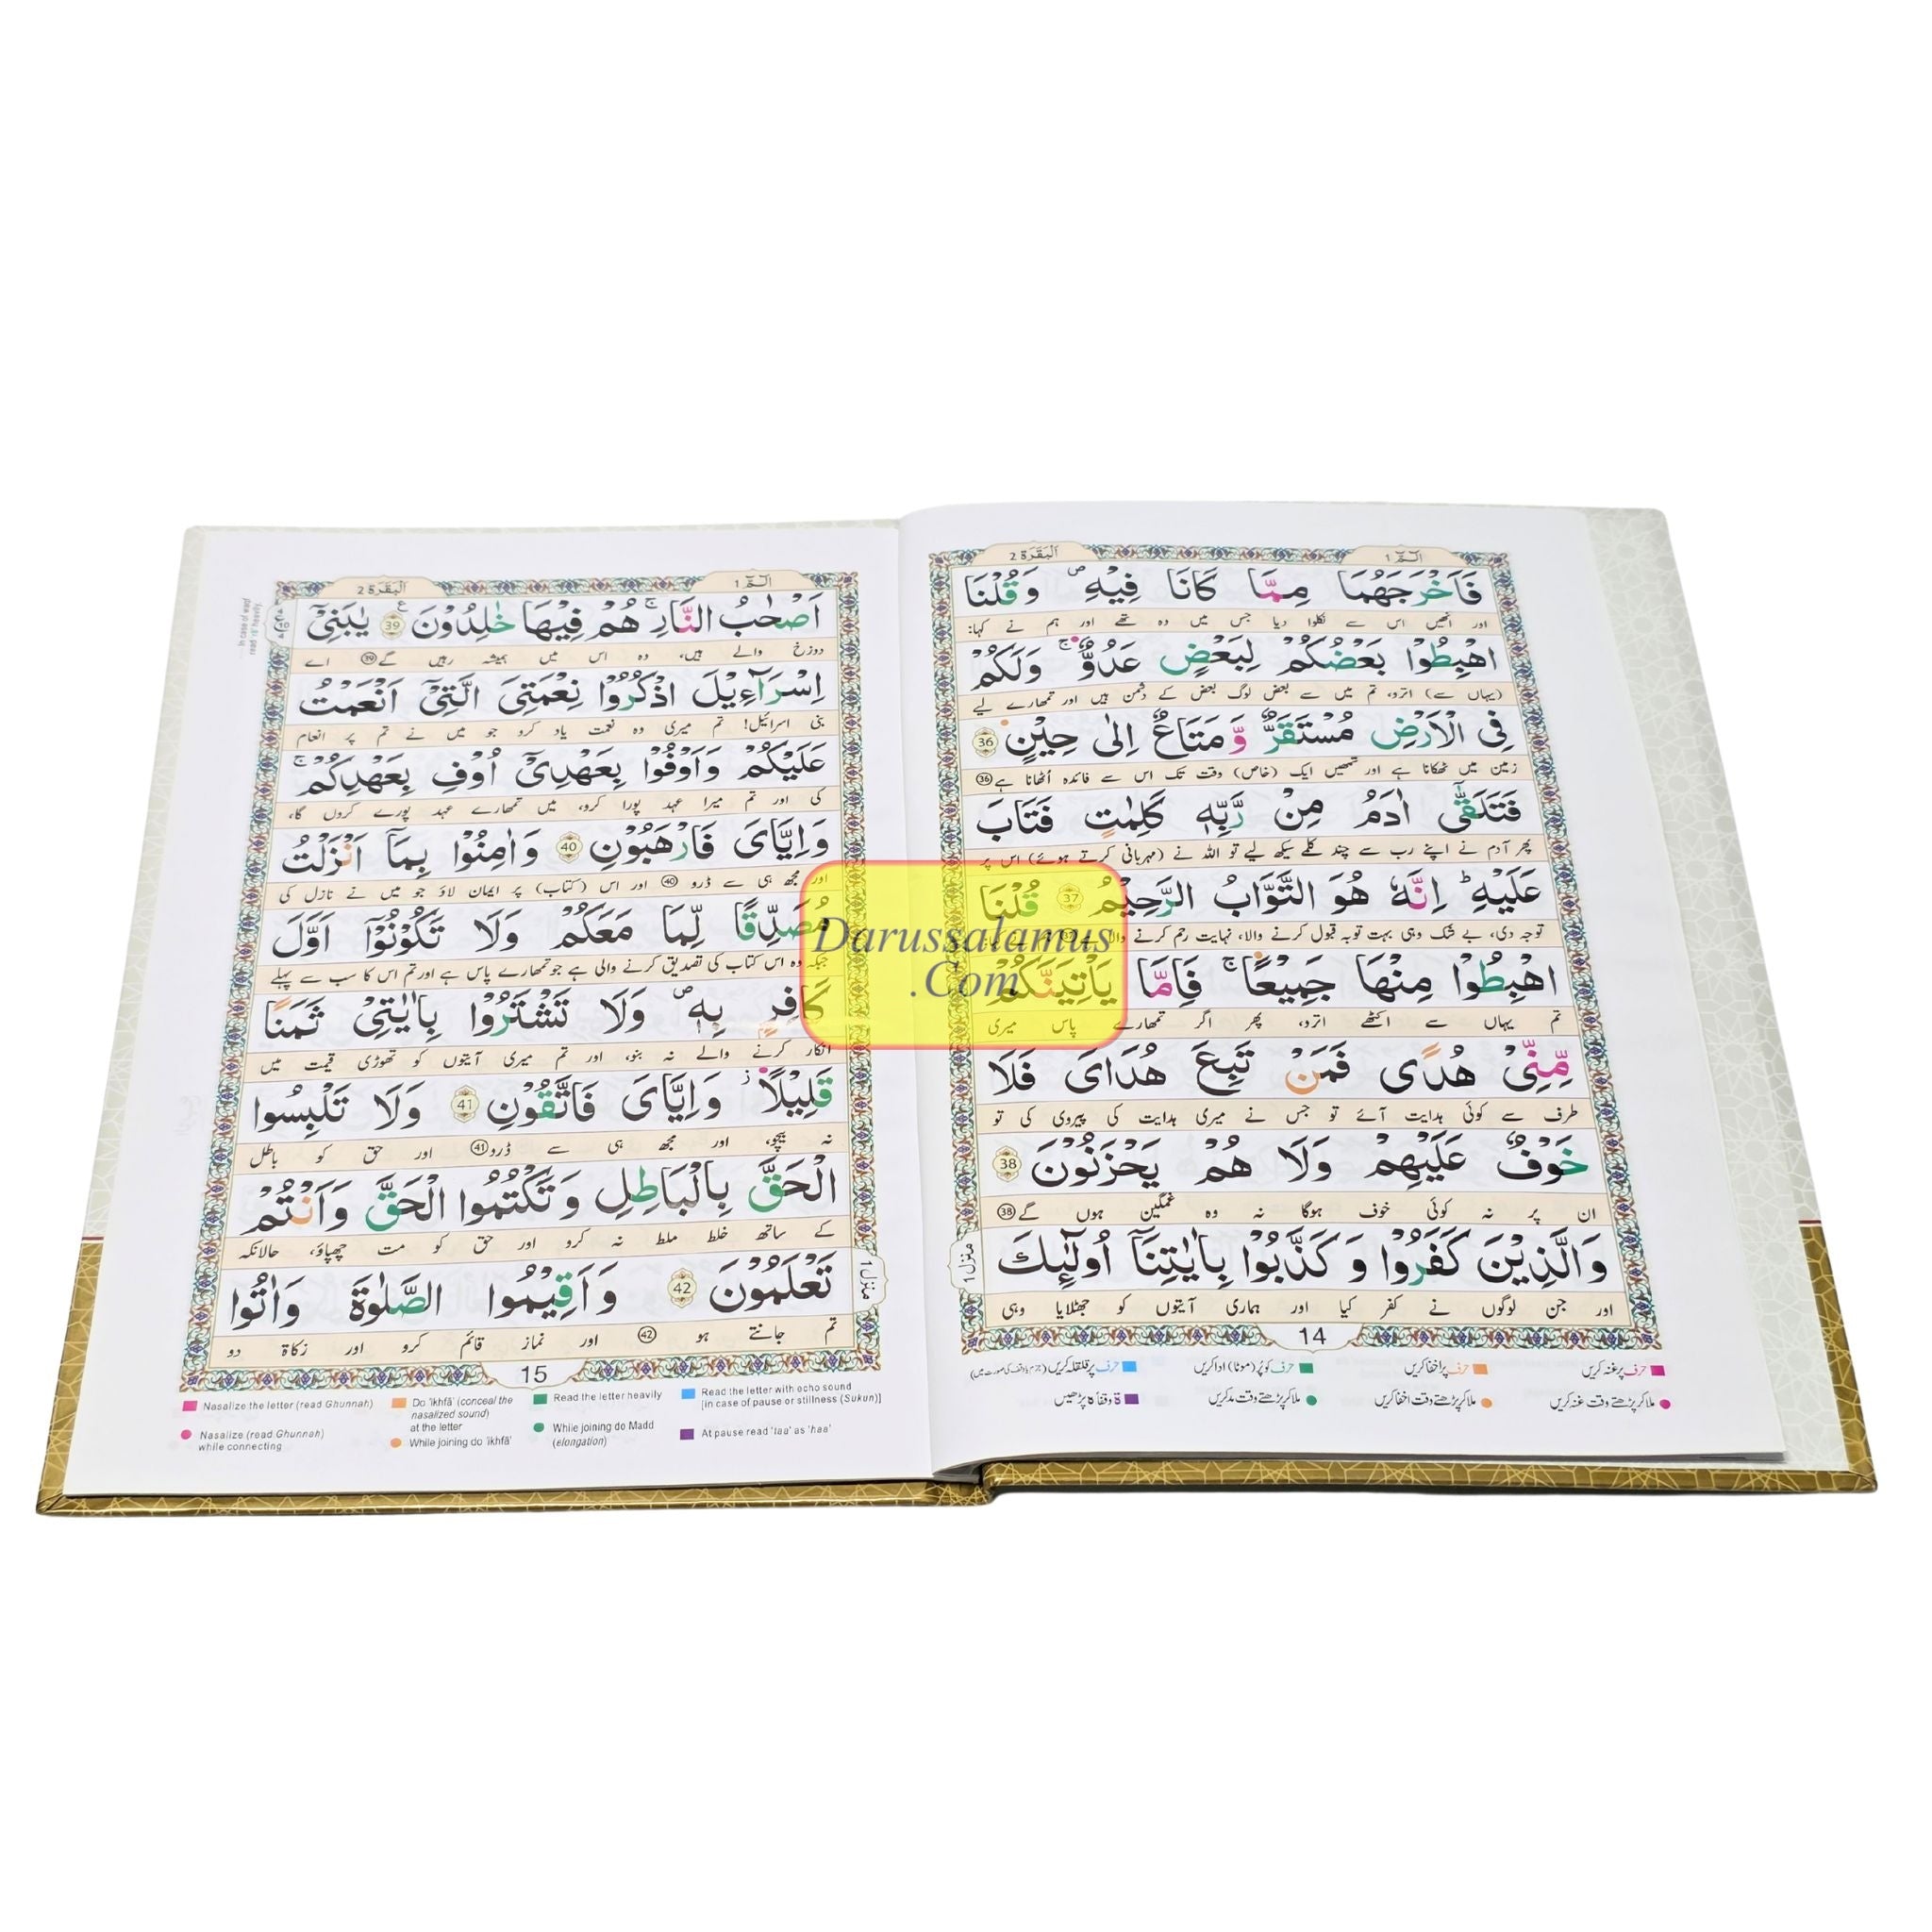 اَلْبَقَرَة 2
الٓمّٓ 1
فَاَخْرَجَهُمَا مِمَّا كَانَا فِيْهِ ۪ وَقُلْنَا
اور انھیں اس سے نکلوا دیا جس میں وہ تھے اور ہم نے کہا:
اهْبِطُوْا بَعْضُكُمْ لِبَعْضٍ عَدُوٌّ ۚ وَلَكُمْ
(یہاں سے) اترو، تم میں سے بعض لوگ بعض کے دشمن ہیں اور تمھارے لیے
فِي الْاَرْضِ مُسْتَقَرٌّ وَّمَتَاعٌ اِلٰى حِيْنٍ 36
زمین میں ٹھکانا ہے اور تمھیں ایک (خاص) وقت تک اس سے فائدہ اُٹھانا ہے 36
فَتَلَقّٰٓى اٰدَمُ مِنْ رَّبِّهٖ كَلِمٰتٍ فَتَابَ
پھر آدم نے اپنے رب سے چند کلمے سیکھ لیے تو اللہ نے (مہربانی کرتے ہوئے) اس پر
عَلَيْهِ ؕ اِنَّهٗ هُوَ التَّوَّابُ الرَّحِيْمُ 37 قُلْنَا
توجہ دی، بے شک وہی بہت توبہ قبول کرنے والا، نہایت رحم کرنے والا 37
اهْبِطُوْا مِنْهَا جَمِيْعًا ۚ فَاِمَّا يَاْتِيَنَّكُمْ
تم یہاں سے اکٹھے اترو، پھر اگر تمھارے پاس میری
مِّنِّيْ هُدًى فَمَنْ تَبِعَ هُدَايَ فَلَا
طرف سے کوئی ہدایت آئے تو جس نے میری ہدایت کی پیروی کی تو
خَوْفٌ عَلَيْهِمْ وَلَا هُمْ يَحْزَنُوْنَ 38
ان پر نہ کوئی خوف ہوگا نہ وہ غمگین ہوں گے 38
وَالَّذِيْنَ كَفَرُوْا وَكَذَّبُوْا بِاٰيٰتِنَآ اُولٰٓئِكَ
اور جن لوگوں نے کفر کیا اور ہماری آیتوں کو جھٹلایا وہی
منزل 1
14
حرف پر غنہ کریں
حرف پر اخفا کریں
حرف کو پُر (موٹا) ادا کریں
حرف پر قلقلہ کریں
ملا کر پڑھتے وقت غنہ کریں
ملا کر پڑھتے وقت اخفا کریں
ملا کر پڑھتے وقت مد کریں
ۃ وقفا کا پڑھیں
اَلْبَقَرَة 2
الٓمّٓ 1
In case of waqf
read 'ra' heavily.
اَصْحٰبُ النَّارِ ۚ هُمْ فِيْهَا خٰلِدُوْنَ 39 يٰبَنِيْٓ
دوزخ والے ہیں، وہ اس میں ہمیشہ رہیں گے 39 اے
اِسْرَآءِيْلَ اذْكُرُوْا نِعْمَتِيَ الَّتِيْٓ اَنْعَمْتُ
بنی اسرائیل! تم میری وہ نعمت یاد کرو جو میں نے تم پر انعام
عَلَيْكُمْ وَاَوْفُوْا بِعَهْدِيْٓ اُوْفِ بِعَهْدِكُمْ ۚ
کی اور تم میرا عہد پورا کرو، میں تمھارے عہد پورے کروں گا،
وَاِيَّايَ فَارْهَبُوْنِ 40 وَاٰمِنُوْا بِمَآ اَنْزَلْتُ
اور مجھ ہی سے ڈرو 40 اور اس (کتاب) پر ایمان لاؤ جو میں نے نازل کی
مُصَدِّقًا لِّمَا مَعَكُمْ وَلَا تَكُوْنُوْٓا اَوَّلَ
جبکہ وہ اس کتاب کی تصدیق کرنے والی ہے جو تمھارے پاس ہے اور تم اس کا سب سے پہلے
كَافِرٍۭ بِهٖ ۪ وَلَا تَشْتَرُوْا بِاٰيٰتِيْ ثَمَنًا
انکار کرنے والے نہ بنو، اور تم میری آیتوں کو تھوڑی قیمت میں
قَلِيْلًا ۫ وَّاِيَّايَ فَاتَّقُوْنِ 41 وَلَا تَلْبِسُوا
نہ بیچو، اور مجھ ہی سے ڈرو 41 اور حق کو باطل
الْحَقَّ بِالْبَاطِلِ وَتَكْتُمُوا الْحَقَّ وَاَنْتُمْ
کے ساتھ خلط ملط نہ کرو اور حق کو مت چھپاؤ، حالانکہ
تَعْلَمُوْنَ 42 وَاَقِيْمُوا الصَّلٰوةَ وَاٰتُوا
تم جانتے ہو 42 اور نماز قائم کرو اور زکاۃ دو
منزل 1
15
Nasalize the letter (read Ghunnah)
Do 'ikhfā' (conceal the nasalized sound) at the letter
Read the letter heavily
Read the letter with echo sound [in case of pause or stillness (Sukun)]
Nasalize (read Ghunnah) while connecting
While joining do 'ikhfā'
While joining do Madd (elongation)
At pause read 'taa' as 'haa'
Darussalamus
.Com